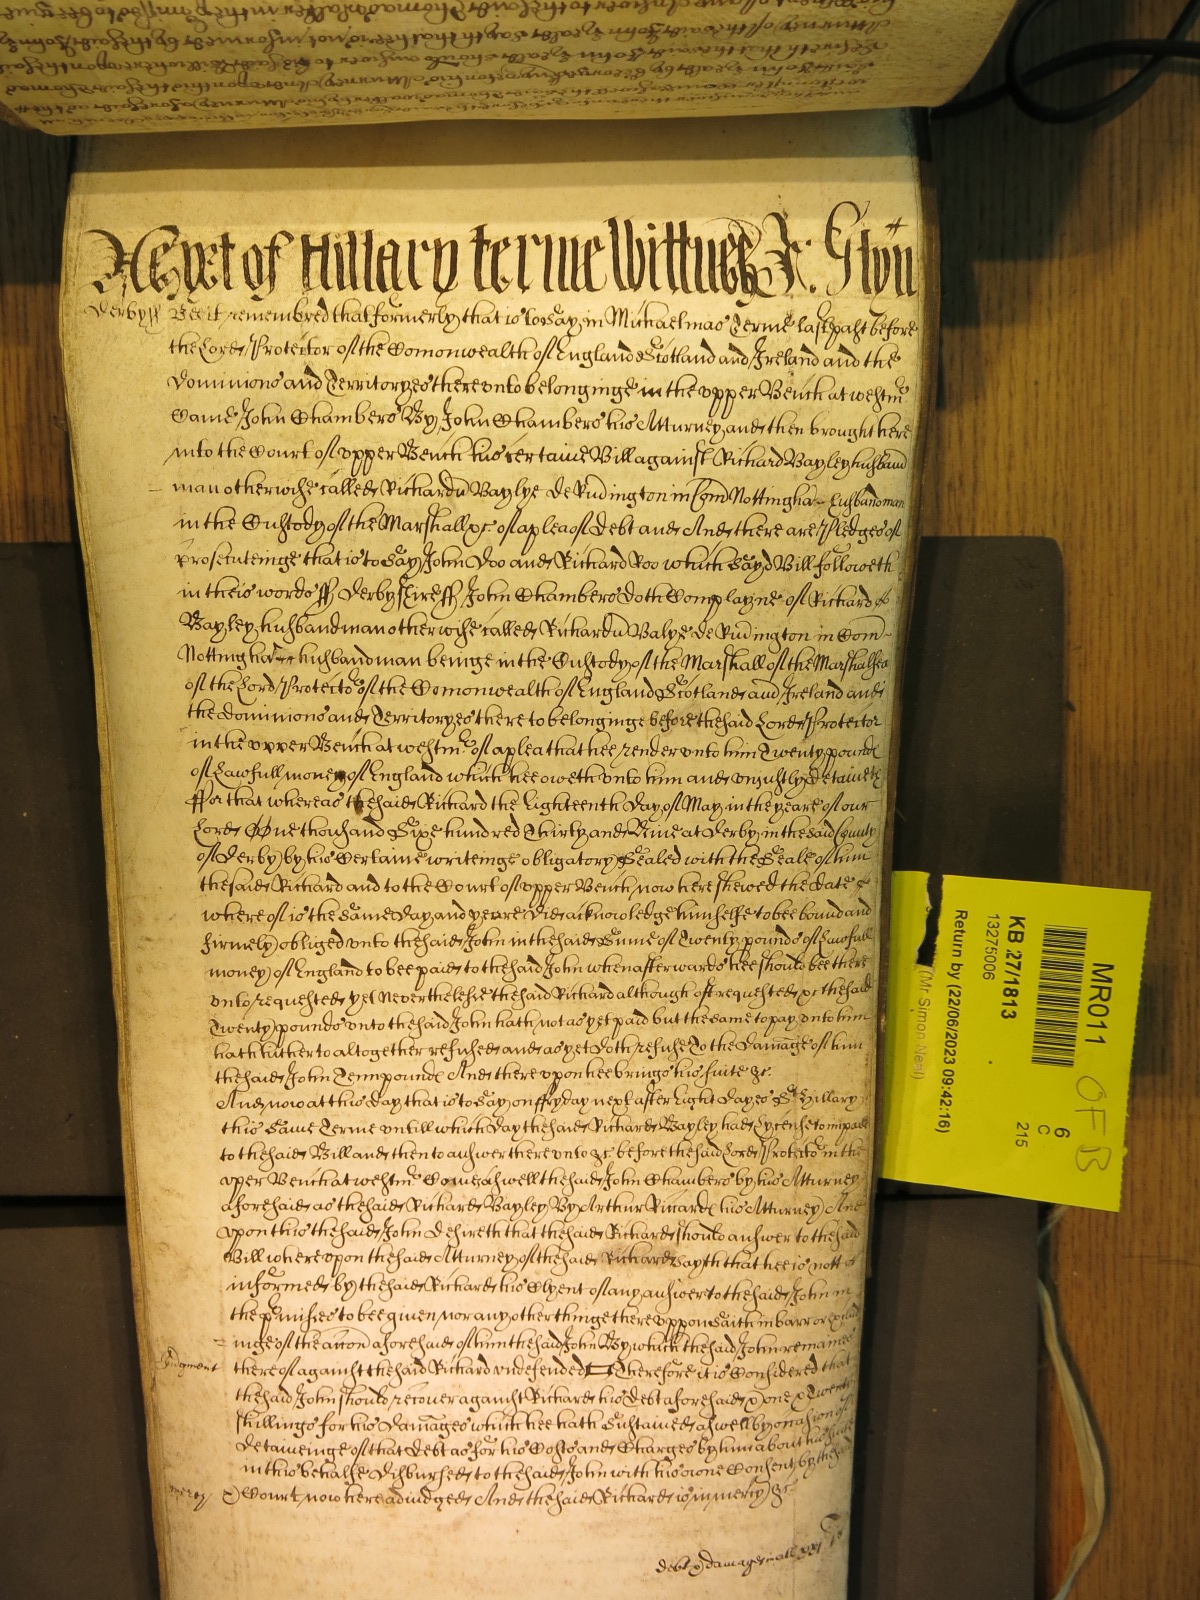 As yet of Hillary terme Wittnes &c: Glyn
Derby ss Bee it remembred that formerly that is to say in Michaelmas Terme last past before
the Lord Protector of the Comonwealth of England Scotland and Ireland and the
Dominions and Territoryes there unto belonginge in the upper Bench at westmr
Came John Chambers By John Chambers his Atturney and then brought here
into the Court of upper Bench his certaine Bill against Richard Bayley husband
man otherwise called Richardu Baylye de Rudington in Com Nottingha husbandman
in the Custody of the Marshall &c of a plea of Debt and And there are Pledges of
prosecuteinge that is to say John Doo and Richard Roo which sayd Bill followeth
in theis words ss Derbyshire ss John Chambers doth Complayne of Richard
Bayley husbandman otherwise called Richardu Balye de Rudington in Com
Nottingha husbandman beinge in the Custody of the Marshall of the Marshalsea
of the Lord Protector of the Comonwealth of England Scotland and Ireland and
the Dominions and Territoryes there to belonginge before the said Lord Protector
in the upper Bench at westmr of a plea that hee render unto him Twenty pound
of Lawfull money of England which hee oweth unto him and uniustly detaineth
ffor that whereas the said Richard the Eighteenth day of May in the yeare of our
Lord One thousand Sixe hundred Thirty and Nine at Derby in the said County
of Derby by his Certaine writeinge obligatory Sealed with the Seale of him
the said Richard and to the Court of upper Bench now here shewed the date
where of is the same day and yeare did acknowledge himselfe to bee bound and
firmely obliged unto the said John in the said Sume of Twenty pounds of Lawfull
money of England to bee paid to the said John when afterwards hee should bee there
unto requested yet Neverthelesse the said Richard although oft requested &c the said
Twenty pounds unto the said John hath not as yet paid but the same to pay unto him
hath hitherto altogether refused and as yet doth refuse To the Damage of him
the said John Tenn pound And there upon hee brings his suite &c
And now at this day that is to say on ffryday next after Eight dayes of St Hillary
this same Terme untill which day the said Richard Bayley had Lycense to imparle
to the said Bill and then to answer there unto &c before the said Lord Protector in the
uper Bench at westmr Come aswell the said John Chambers by his Atturney
aforesaid as the said Richard Bayley By Arthur Ricard his Atturney And
upon this the said John desireth that the said Richard should answer to the said
Bill where upon the said Atturney of the said Richard sayth that hee is nott
informed by the said Richard his Clyent of any answer to the said John in
the pmisses to bee given nor any other thinge there uppon Saith in barr or
inge of the accon aforesaid of him the said John By which the said John remaines
Judgment thereof against the said Richard undefended Therefore it is Considered that
the said John should recover against Richard his debt aforesaid & one & Twenty
shillings for his damages which hee hath Sustained aswell by occasion of
detaineinge of that debt as for his Costs and Charges by him about his suite
in his behalfe disbursed to the said John with his owne Consent by the said
mercy Court now here adiudged And the said Richard is in mercy &c
debt & damages in all xxj li
MR011
OFB
6
C
215
KB 27/1813
13275006
(Mr Simon Neal)
Return by (22/06/2023 09:42:16)